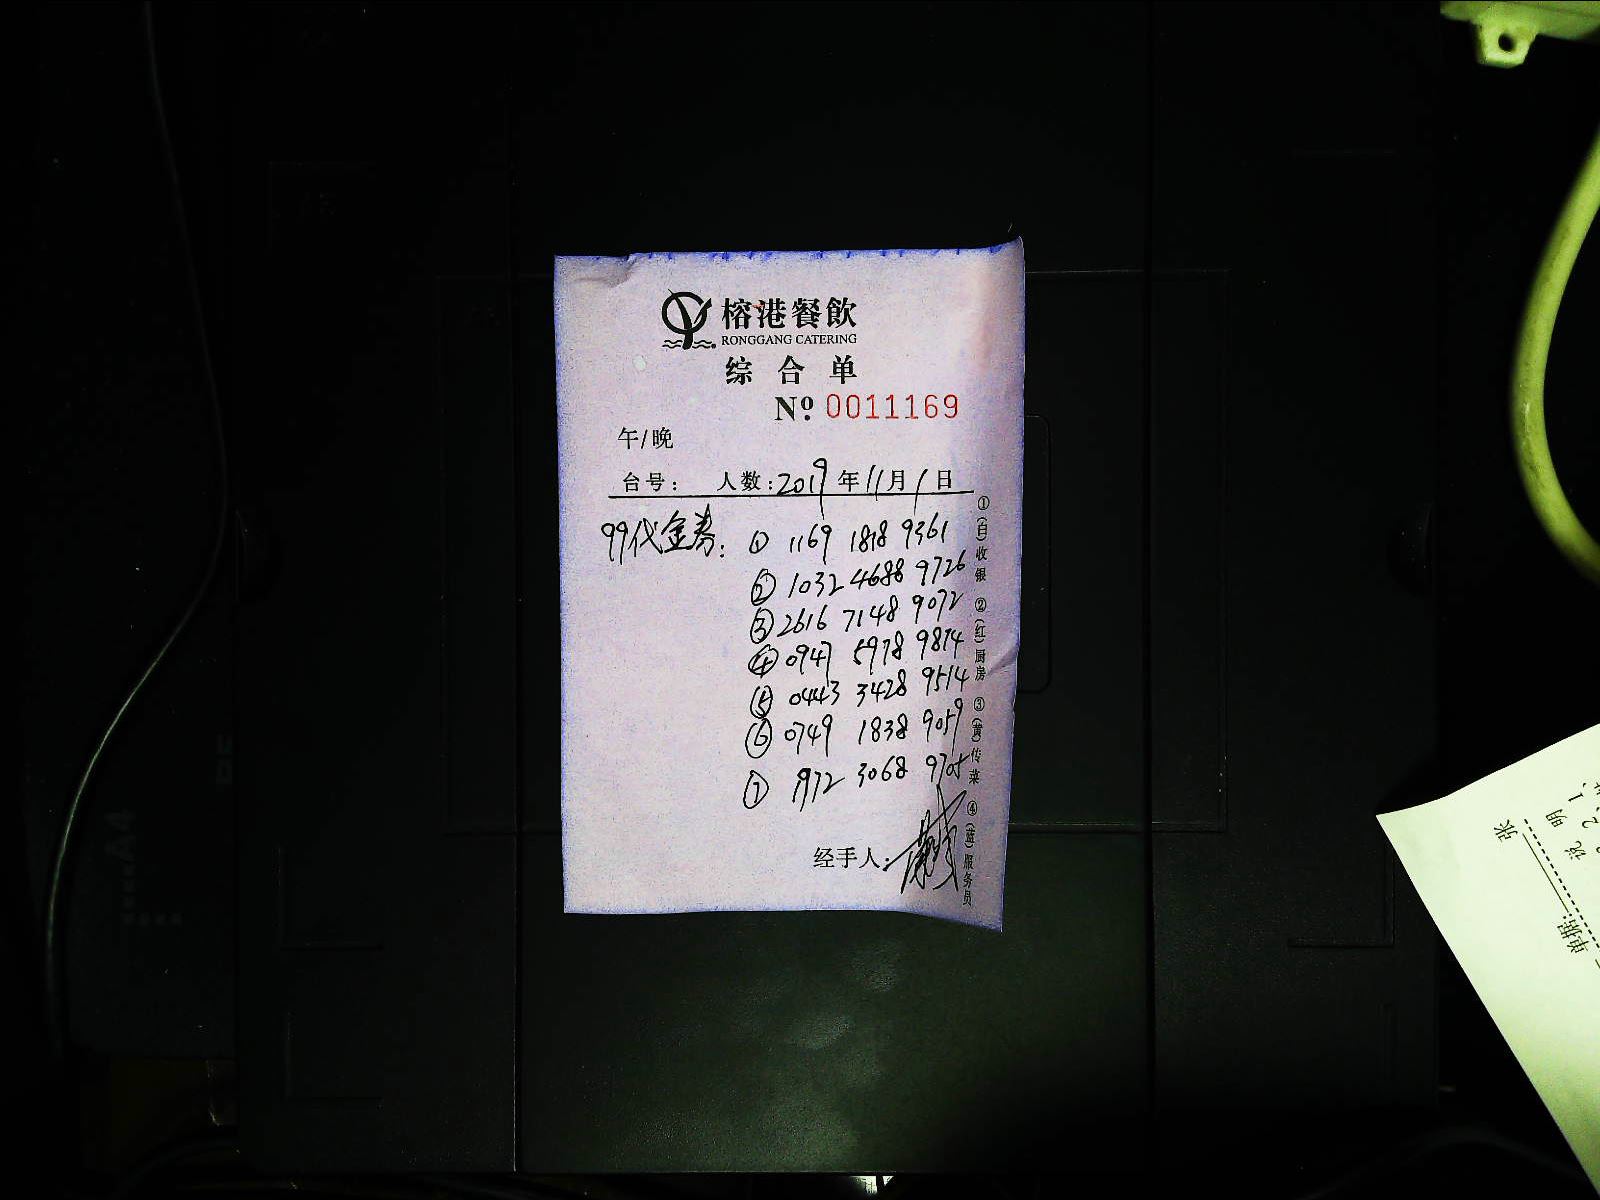 榕港餐飲
RONGGANG CATERING
综合单
Nº 0011169
午/晚
台号: 人数: 2019年11月1日
99代金券: ① 1169 1818 9361
② 1032 4688 9726
③ 2616 7148 9072
④ 0947 5978 9874
⑤ 0443 3428 9514
⑥ 0749 1838 9059
⑦ 3068 9705
经手人:
①(白)收银 ②(红)厨房 ③(黄)传菜 ④(蓝)服务员
张
说明 1、
2、
单据: